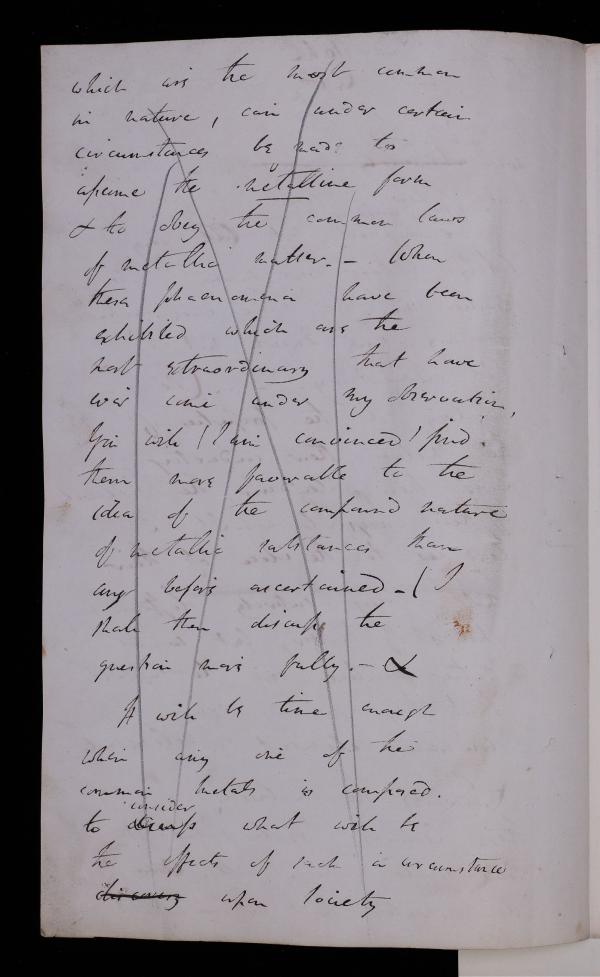 which are the most common
in nature, can under certain
circumstances be made to
assume the metalline form
& to obey the common laws
of metallic matter. — When
these phaenomena have been
exhibited which are the
most extraordinary that have
ever come under my observation,
You will (I am convinced) find
them more favorable to the
idea of the compound nature
of metallic substances than
any before ascertained — (I
shall then discuss the
question more fully. —
It will be time enough
when any one of the
common metals is composed.
consider
to discuss what will be
the effects of such a circumstance
discovery upon Society